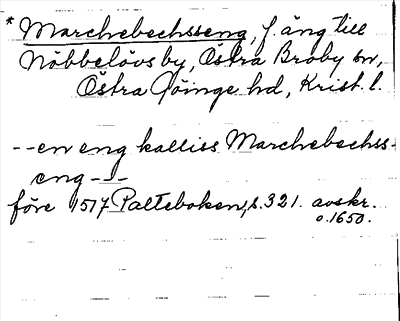 * Marchebechsseng, f. äng till
Nöbbelövs by, Östra Broby sn,
Östra Göinge hd, Krist. l.
--en eng kalliss Marchebechss-
eng---
före 1517 Palteboken, s. 321. avskr.
o. 1650.